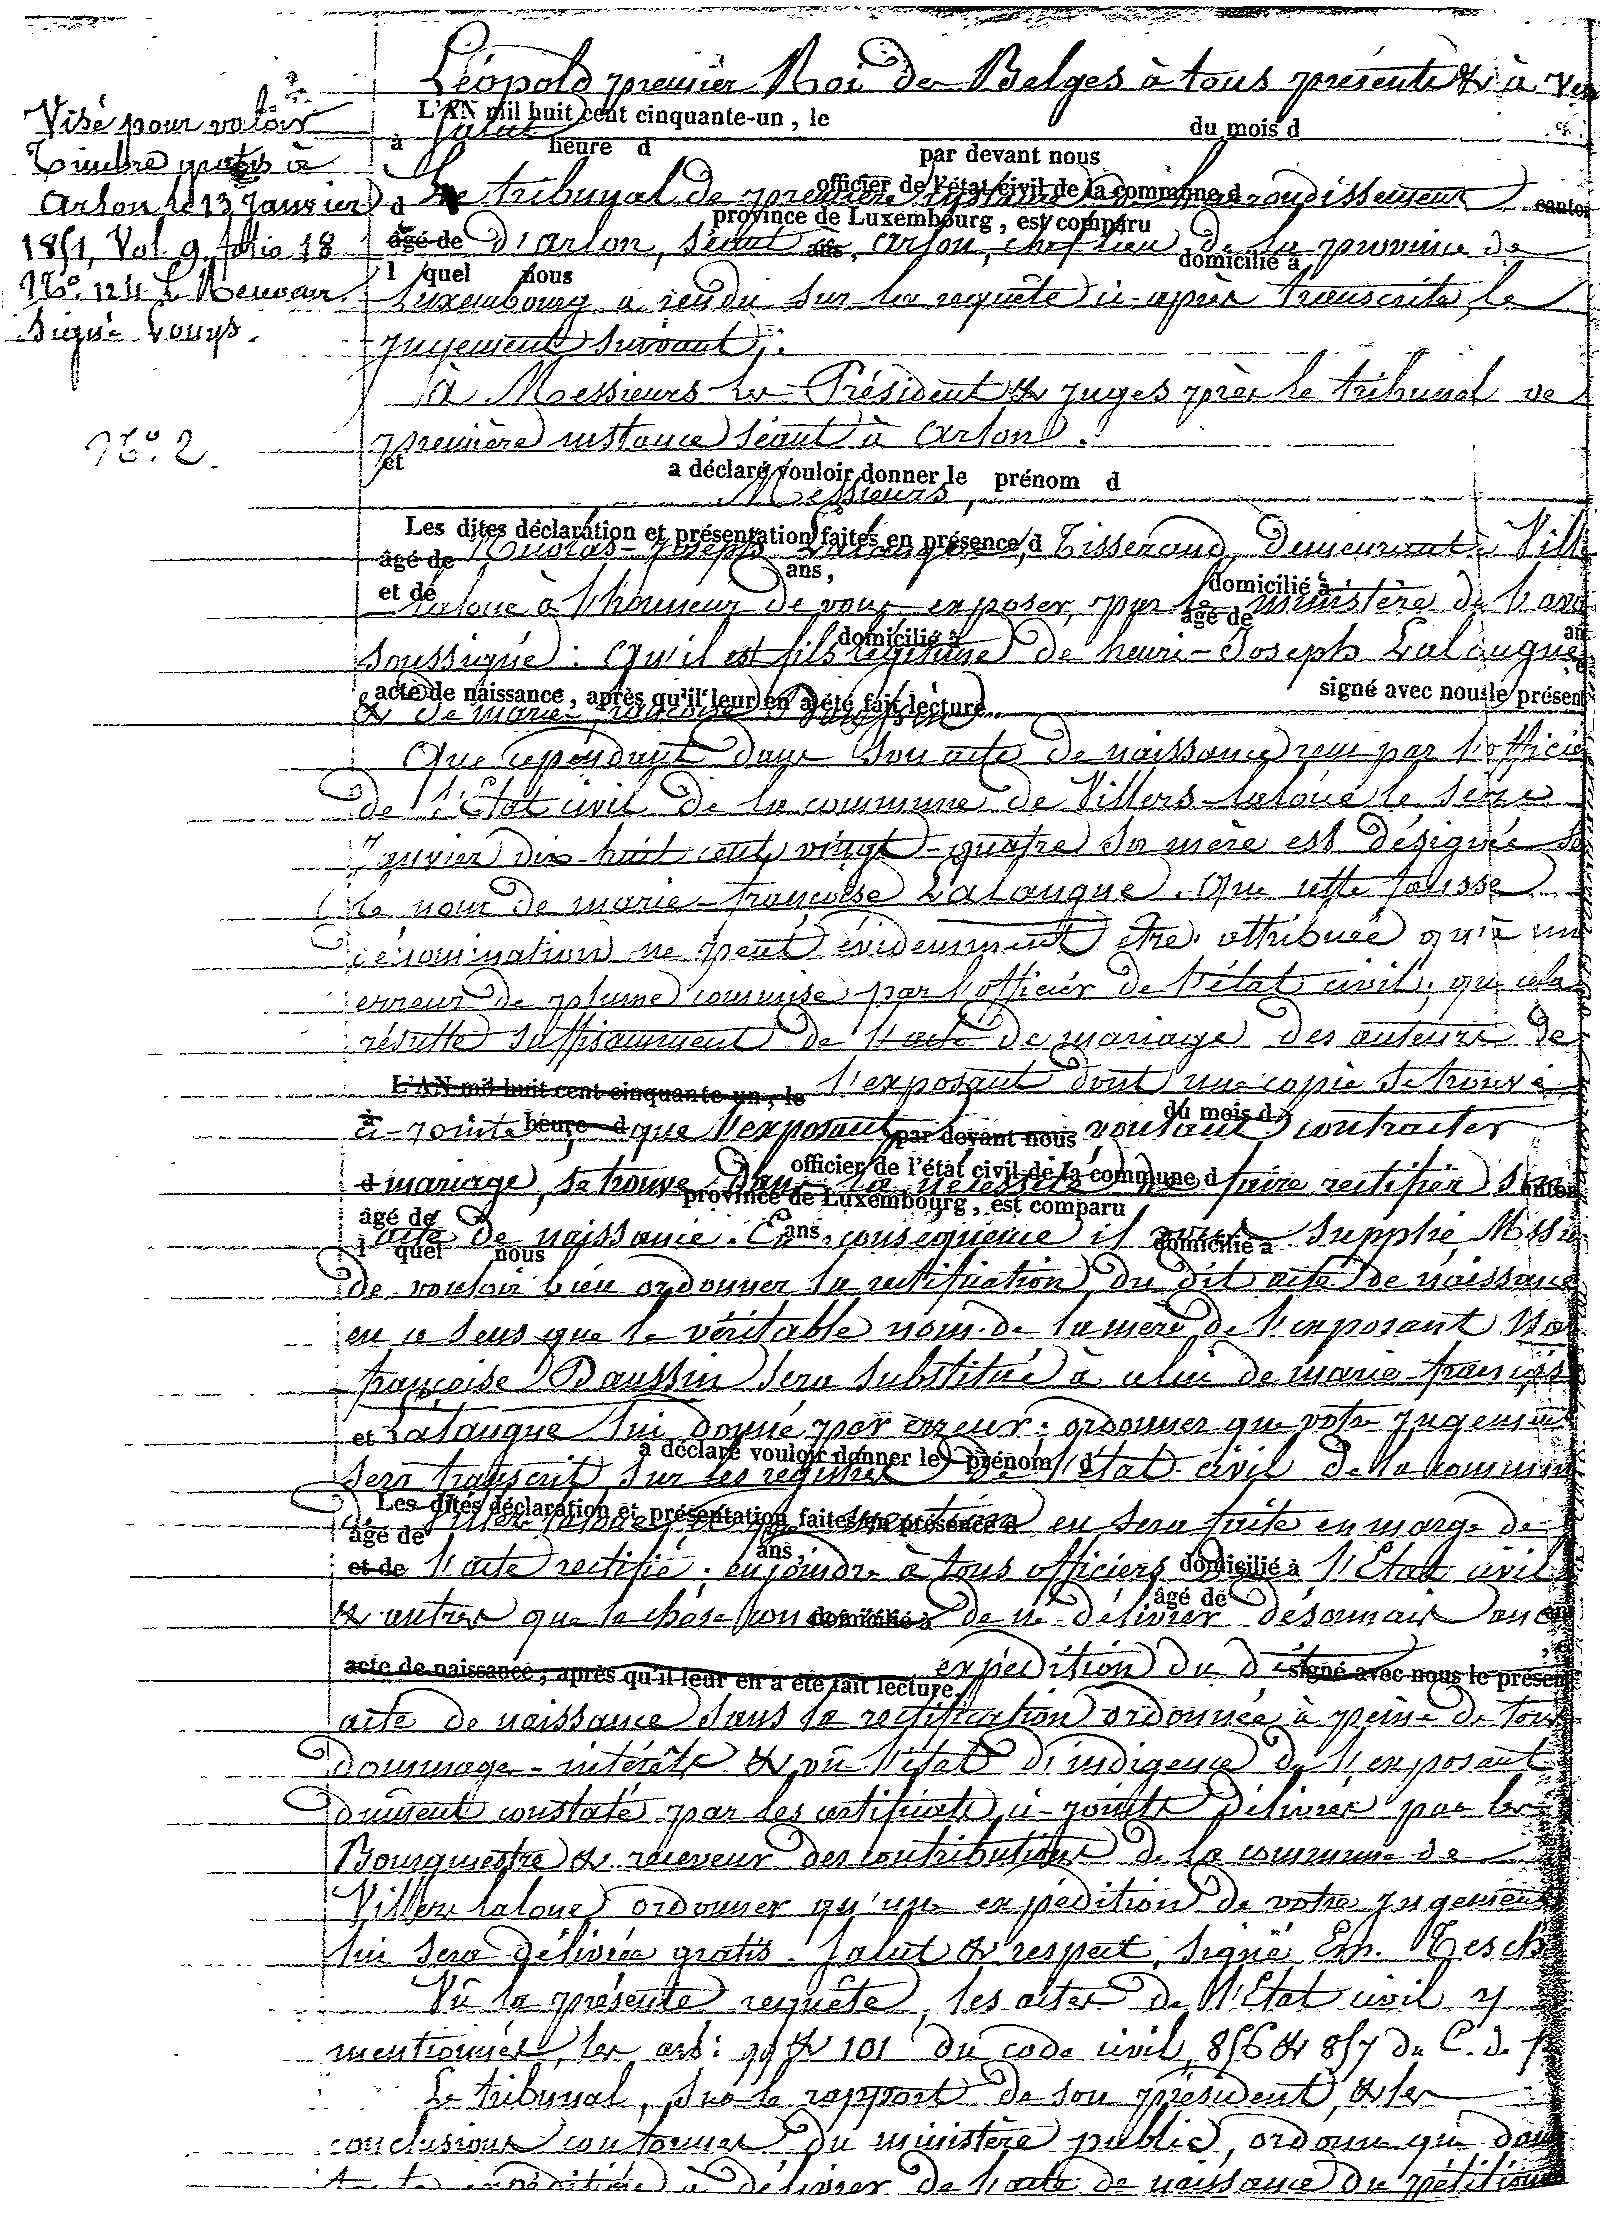 Léopold premier Roi des Belges à tous présents & à ven
L'AN mil huit cent cinquante-un, le du mois d
Salut
à heure d par devant nous
Visé pour valoir
Timbre gratis à
Arlon le 13 Janvier
1851, Vol. 9 folio 18
N°. 124 Le Receveur
Signé Lonys.
N°. 2.
officier de l'état civil de la commune d
Le tribunal de première instance de l'arrondissement
d canton
province de Luxembourg, est comparu
âgé de ans, domicilié à
d'Arlon, séant à Arlon, chef lieu de la province de
l quel nous
Luxembourg a rendu sur la requête ci-après transcrite, le
jugement suivant:
à Messieurs les Président & juges près le tribunal de
première instance séant à Arlon.
et a déclaré vouloir donner le prénom d
Messieurs,
Les dites déclaration et présentation faites en présence d
Nicolas-Joseph Lalangue, Tisserand, demeurant à Ville
âgé de ans, domicilié à
et de âgé de
laloue à l'honneur de vous exposer, par le ministère de l'avo
domicilié à an
soussigné: Qu'il est fils légitime de henri-Joseph Lalangue
acte de naissance, après qu'il leur en a été fait lecture. signé avec nous le présent
& de marie françoise Daussin
Que cependant dans son acte de naissance reçu par l'officie
de l'Etat civil de la commune de Villers-laloue le seize
Janvier dix-huit cent vingt-quatre sa mère est désignée so
le nom de marie-françoise Lalangue. Que cette fausse
dénomination ne peut évidemment être attribuée qu'à un
erreur de plume commise par l'officier de l'état civil; que cela
résulte suffisamment de l'acte de mariage des auteurs de
L'AN mil huit cent cinquante-un, le
l'exposant dont une copie se trouve
du mois d
à heure d par devant nous
ci-jointe que l'exposant voulant contracter
officier de l'état civil de la commune d
d canton
mariage, se trouve dans la nécessité de faire rectifier son
province de Luxembourg, est comparu
âgé de ans, domicilié à
acte de naissance. En conséquence il vous supplie, Messie
l quel nous
de vouloir bien ordonner la rectification du dit acte de naissance
en ce sens que le véritable nom de la mère de l'exposant Mar
françoise Daussin sera substitué à celui de marie-françoise
et Lalangue lui donné par erreur: ordonner que votre jugement
a déclaré vouloir donner le prénom d
sera transcrit sur les registres de l'état civil de la commune
Les dites déclaration et présentation faites en présence d
de Villers laloue, que mention en sera faite en marge de
âgé de ans, domicilié à
et de l'acte rectifié; enjoindre à tous officiers de l'Etat civil
âgé de
domicilié à
& autres que la chose concerne de ne délivrer désormais aucu
expédition du dit
acte de naissance, après qu'il leur en a été fait lecture. signé avec nous le présent
acte de naissance sans la rectification ordonnée à peine de tous
dommage-intérêts & vû l'état d'indigence de l'exposant
dûment constaté par les certificats ci-joints délivrés par les
Bourgmestre & receveur des contributions de la commune de
Villers laloue, ordonner qu'une expédition de votre jugement
lui sera délivrée gratis. Salut & respect, signé Em. Tesch
Vû la présente requête, les actes de l'Etat civil y
mentionnés, les art: 99 & 101 du code civil, 856 & 857 du C. de p
Le tribunal, sur le rapport de son président, & les
conclusions conformes du ministère public, ordonne que dans
expédition à délivrer de l'acte de naissance du pétitionn